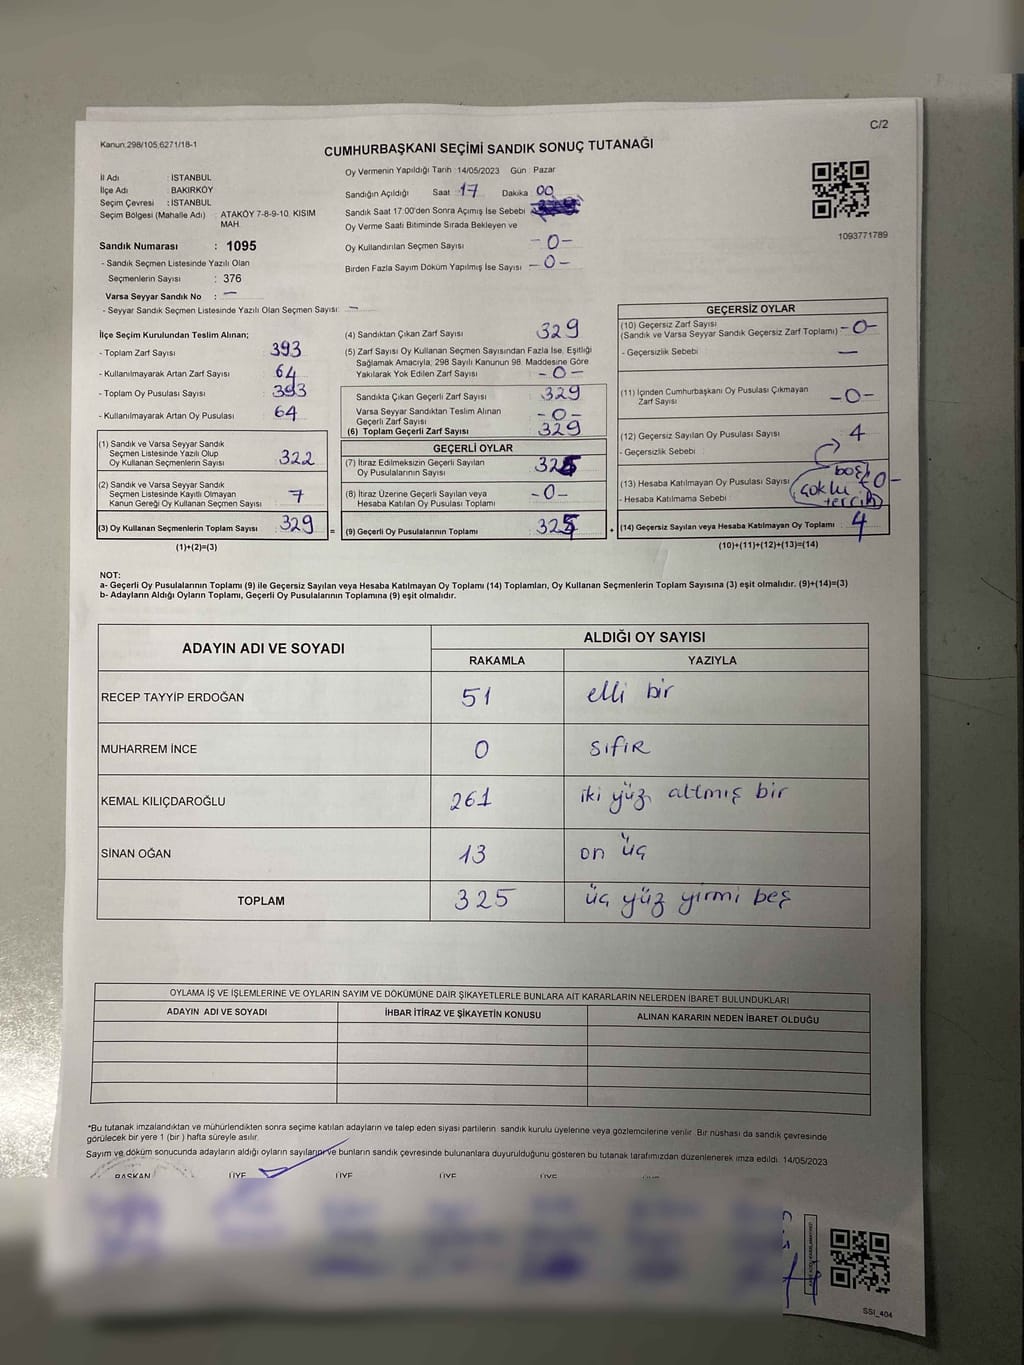 C/2
Kanun:298/105,6271/18-1
CUMHURBAŞKANI SEÇİMİ SANDIK SONUÇ TUTANAĞI
İl Adı : İSTANBUL
İlçe Adı : BAKIRKÖY
Seçim Çevresi : İSTANBUL
Seçim Bölgesi (Mahalle Adı) : ATAKÖY 7-8-9-10. KISIM
MAH.
Sandık Numarası : 1095
- Sandık Seçmen Listesinde Yazılı Olan
Seçmenlerin Sayısı : 376
Varsa Seyyar Sandık No : —
- Seyyar Sandık Seçmen Listesinde Yazılı Olan Seçmen Sayısı: —
Oy Vermenin Yapıldığı Tarih 14/05/2023 Gün : Pazar
Sandığın Açıldığı Saat 17 Dakika 00
Sandık Saat 17:00'den Sonra Açımış İse Sebebi
Oy Verme Saati Bitiminde Sırada Bekleyen ve
Oy Kullandırılan Seçmen Sayısı -0-
Birden Fazla Sayım Döküm Yapılmış İse Sayısı -0-
1093771789
İlçe Seçim Kurulundan Teslim Alınan;
- Toplam Zarf Sayısı 393
- Kullanılmayarak Artan Zarf Sayısı 64
- Toplam Oy Pusulası Sayısı 393
- Kullanılmayarak Artan Oy Pusulası 64
(1) Sandık ve Varsa Seyyar Sandık
Seçmen Listesinde Yazılı Olup
Oy Kullanan Seçmenlerin Sayısı 322
(2) Sandık ve Varsa Seyyar Sandık
Seçmen Listesinde Kayıtlı Olmayan
Kanun Gereği Oy Kullanan Seçmen Sayısı 7
(3) Oy Kullanan Seçmenlerin Toplam Sayısı 329 =
(1)+(2)=(3)
(4) Sandıktan Çıkan Zarf Sayısı 329
(5) Zarf Sayısı Oy Kullanan Seçmen Sayısından Fazla İse, Eşitliği
Sağlamak Amacıyla, 298 Sayılı Kanunun 98. Maddesine Göre
Yakılarak Yok Edilen Zarf Sayısı -0-
Sandıkta Çıkan Geçerli Zarf Sayısı 329
Varsa Seyyar Sandıktan Teslim Alınan
Geçerli Zarf Sayısı -0-
(6) Toplam Geçerli Zarf Sayısı 329
GEÇERLİ OYLAR
(7) İtiraz Edilmeksizin Geçerli Sayılan
Oy Pusulalarının Sayısı 325
(8) İtiraz Üzerine Geçerli Sayılan veya
Hesaba Katılan Oy Pusulası Toplamı -0-
(9) Geçerli Oy Pusulalarının Toplamı 325 +
GEÇERSİZ OYLAR
(10) Geçersiz Zarf Sayısı
(Sandık ve Varsa Seyyar Sandık Geçersiz Zarf Toplamı) -0-
- Geçersizlik Sebebi —
(11) İçinden Cumhurbaşkanı Oy Pusulası Çıkmayan
Zarf Sayısı -0-
(12) Geçersiz Sayılan Oy Pusulası Sayısı 4
- Geçersizlik Sebebi
boş
(13) Hesaba Katılmayan Oy Pusulası Sayısı -0-
çoklu
- Hesaba Katılmama Sebebi tercih
(14) Geçersiz Sayılan veya Hesaba Katılmayan Oy Toplamı 4
(10)+(11)+(12)+(13)=(14)
NOT:
a- Geçerli Oy Pusulalarının Toplamı (9) ile Geçersiz Sayılan veya Hesaba Katılmayan Oy Toplamı (14) Toplamları, Oy Kullanan Seçmenlerin Toplam Sayısına (3) eşit olmalıdır. (9)+(14)=(3)
b- Adayların Aldığı Oyların Toplamı, Geçerli Oy Pusulalarının Toplamına (9) eşit olmalıdır.
ADAYIN ADI VE SOYADI ALDIĞI OY SAYISI
RAKAMLA YAZIYLA
RECEP TAYYİP ERDOĞAN 51 elli bir
MUHARREM İNCE 0 sıfır
KEMAL KILIÇDAROĞLU 261 iki yüz altmış bir
SİNAN OĞAN 13 on üç
TOPLAM 325 üç yüz yirmi beş
OYLAMA İŞ VE İŞLEMLERINE VE OYLARIN SAYIM VE DÖKÜMÜNE DAİR ŞİKAYETLERLE BUNLARA AİT KARARLARIN NELERDEN İBARET BULUNDUKLARI
ADAYIN ADI VE SOYADI İHBAR İTİRAZ VE ŞİKAYETİN KONUSU ALINAN KARARIN NEDEN İBARET OLDUĞU
*Bu tutanak imzalandıktan ve mühürlendikten sonra seçime katılan adayların ve talep eden siyasi partilerin sandık kurulu üyelerine veya gözlemcilerine verilir. Bir nüshası da sandık çevresinde
görülecek bir yere 1 (bir ) hafta süreyle asılır.
Sayım ve döküm sonucunda adayların aldığı oyların sayılarını ve bunların sandık çevresinde bulunanlara duyurulduğunu gösteren bu tutanak tarafımızdan düzenlenerek imza edildi. 14/05/2023
BAŞKAN ÜYE ÜYE ÜYE ÜYE ÜYE
SSI_404